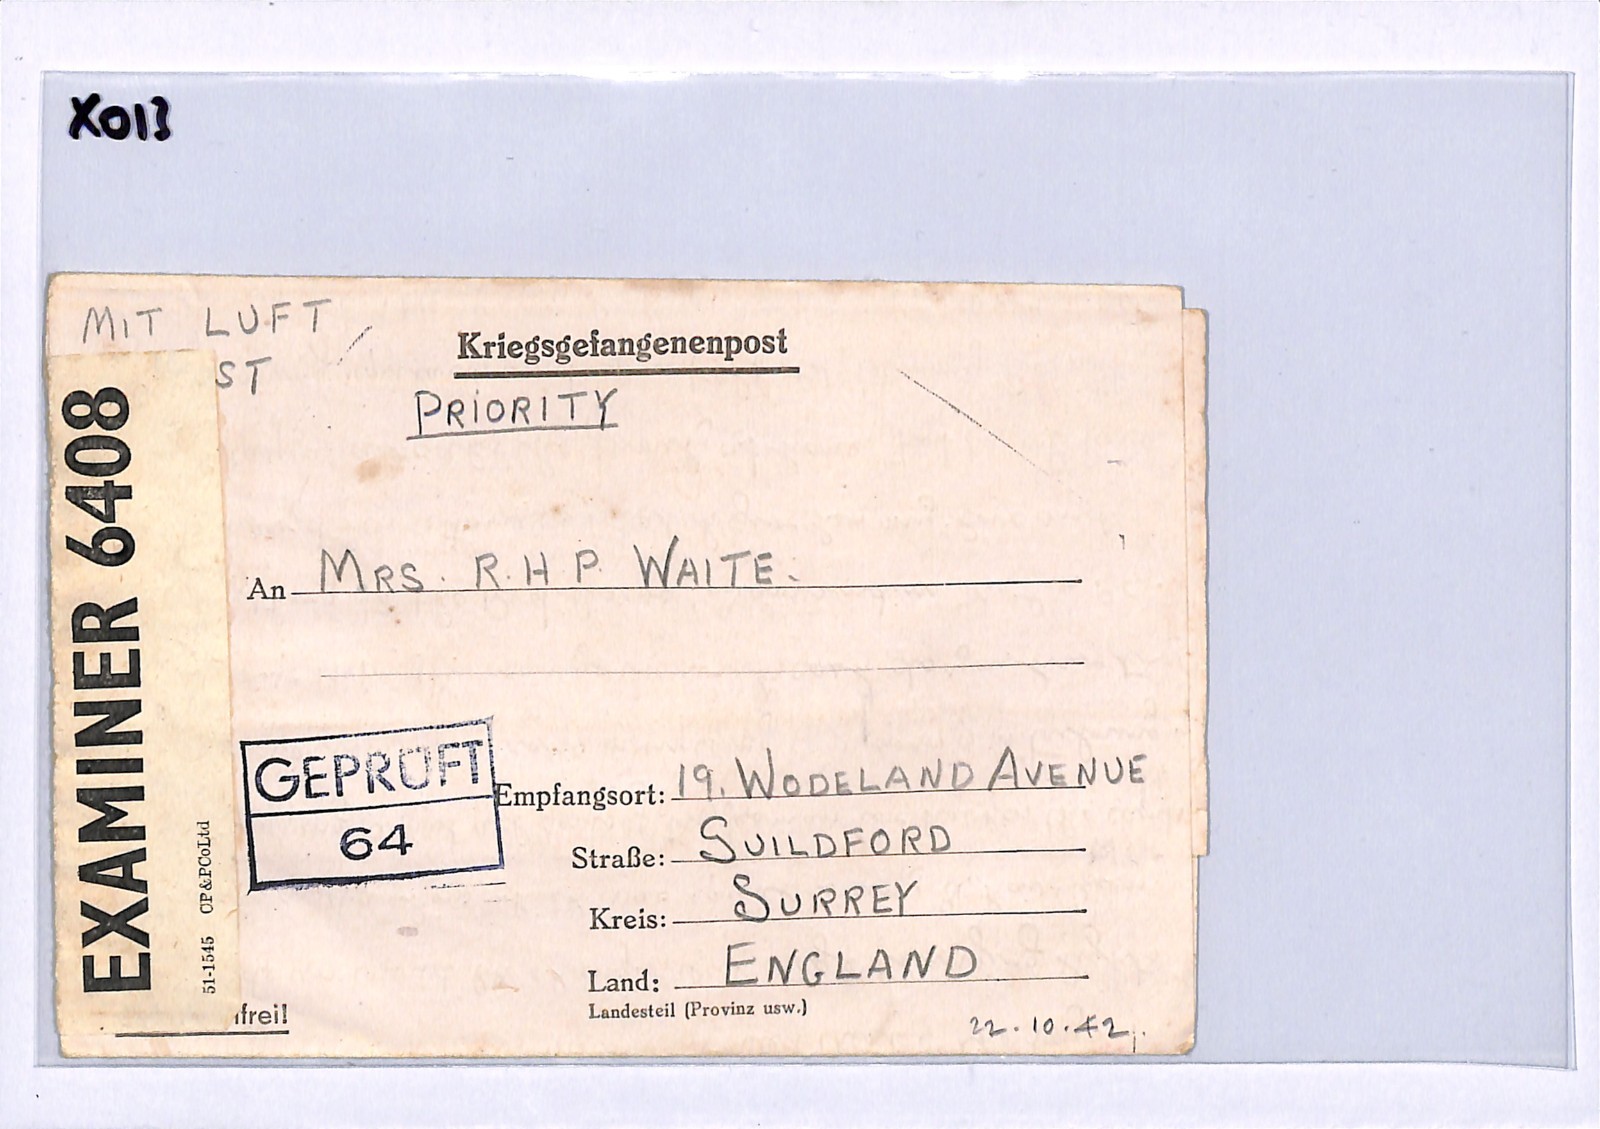 X013
MIT LUFT
ST
Kriegsgefangenenpost
PRIORITY
EXAMINER 6408
51-1545 CP&PCoLtd
An MRS. R.H P. WAITE.
GEPRÜFT
64
Empfangsort: 19. WODELAND AVENUE
Straße: GUILDFORD
Kreis: SURREY
Land: ENGLAND
Landesteil (Provinz usw.)
frei!
22.10.42